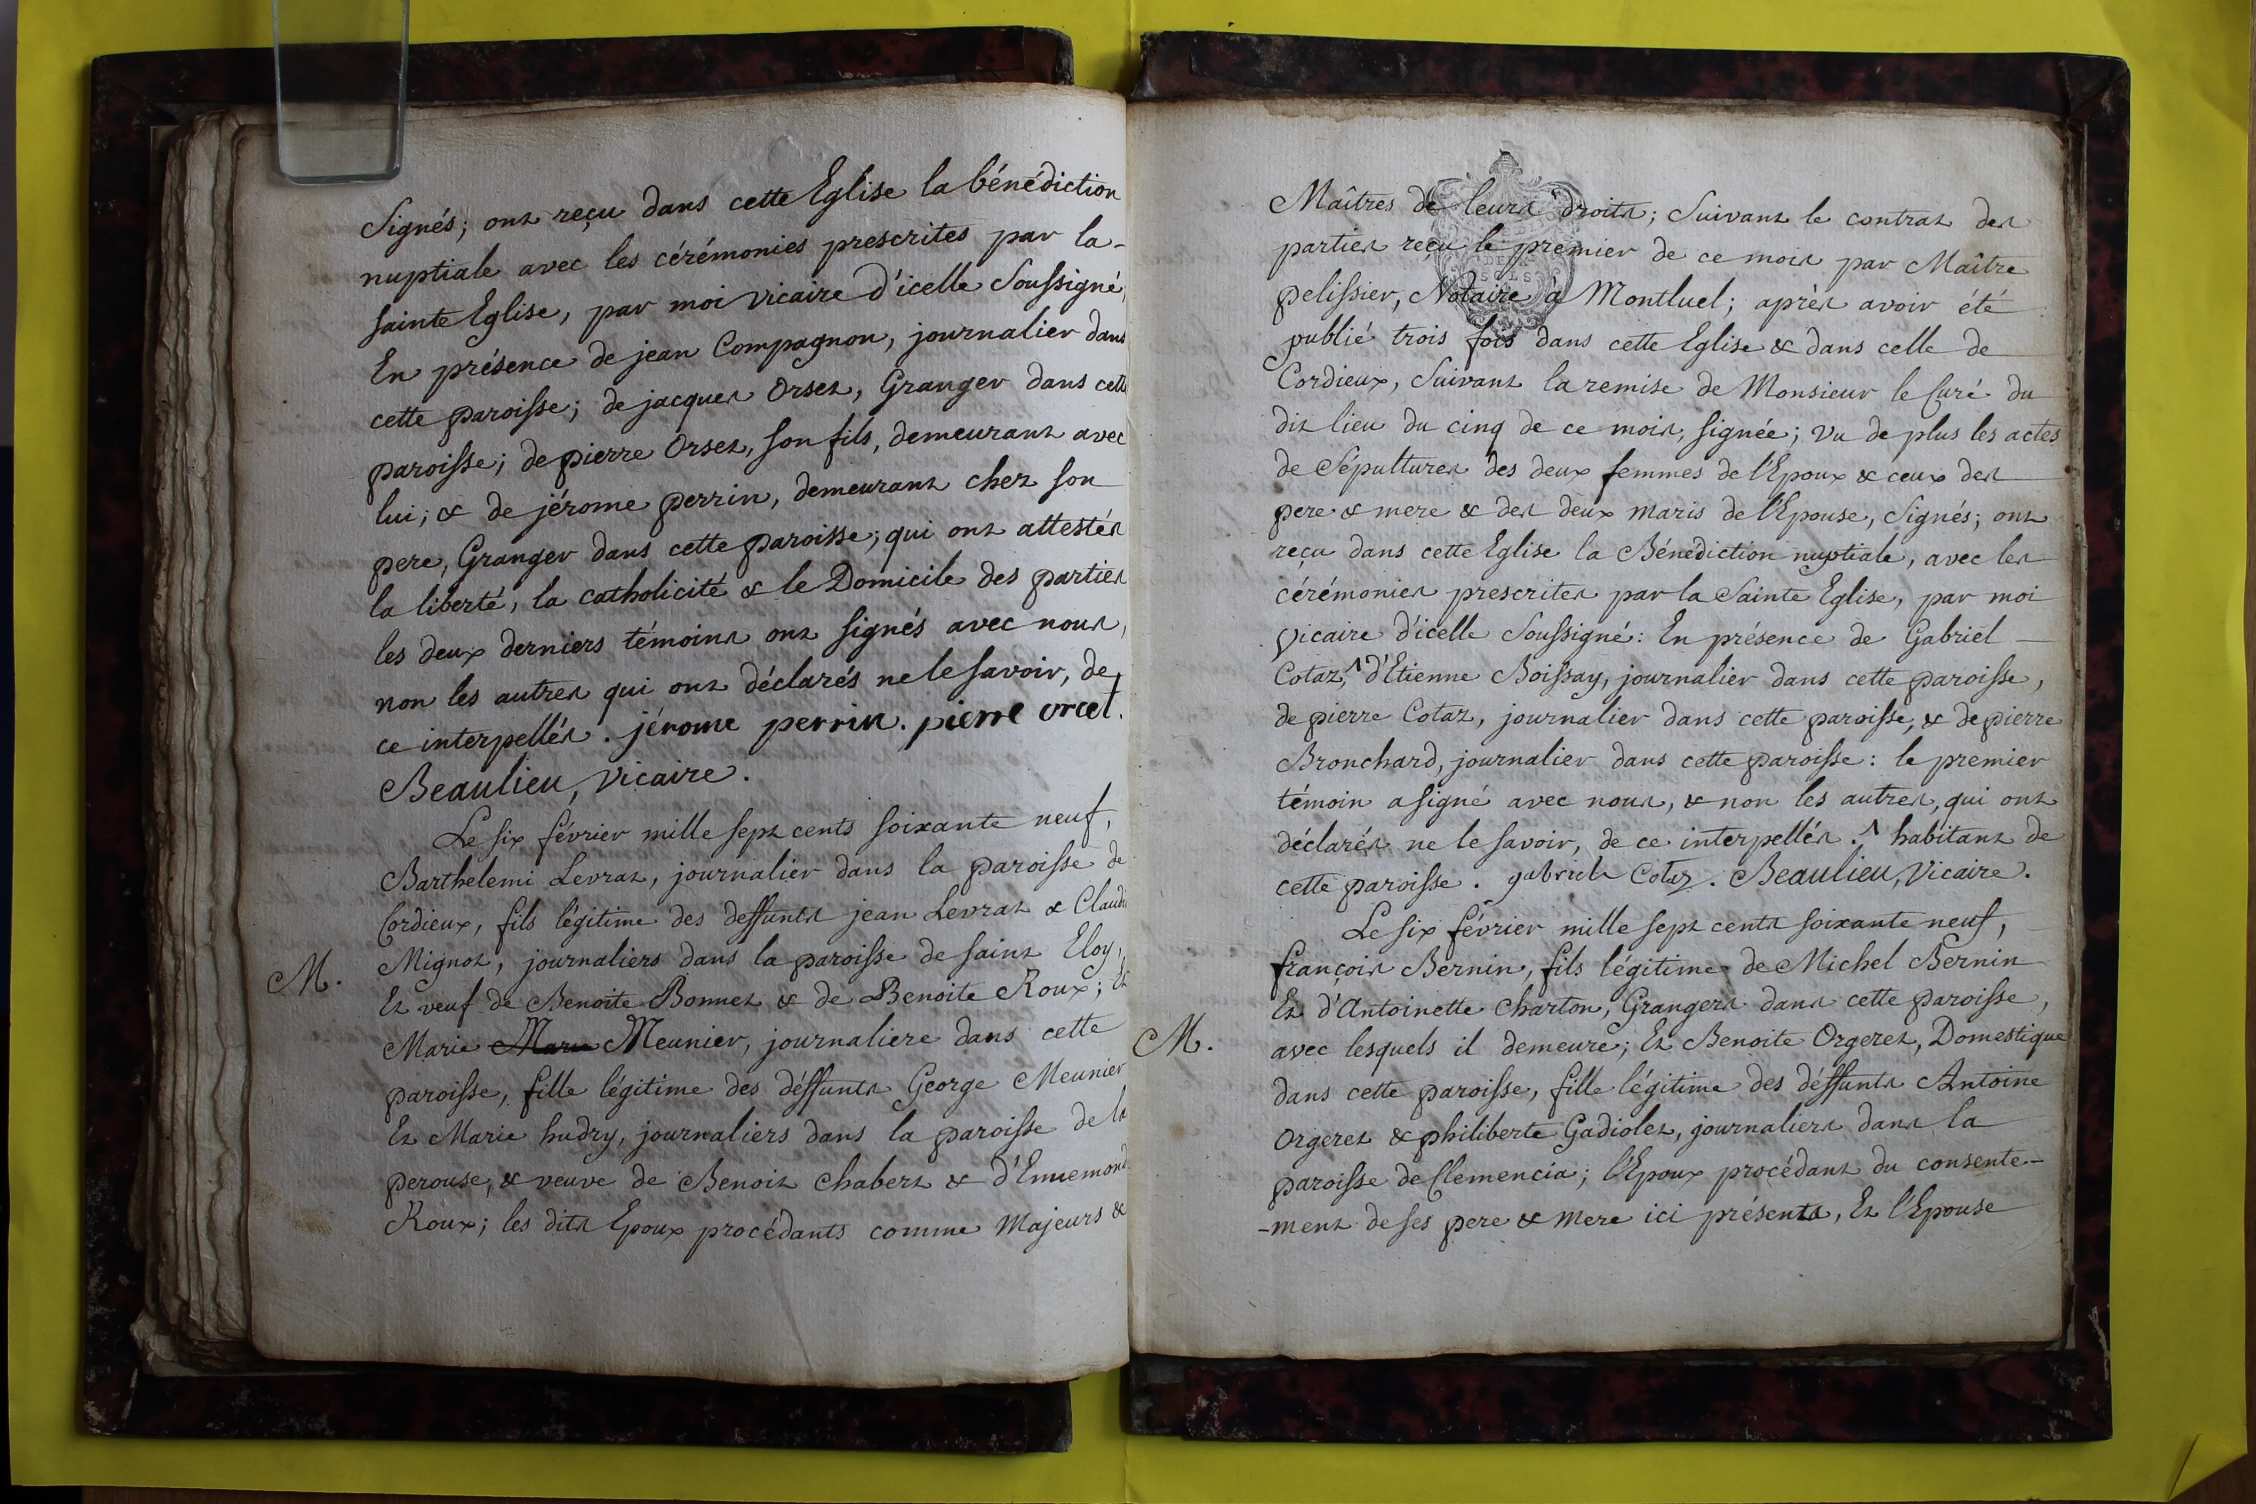 Signés; ont reçu dans cette Eglise la bénédiction
nuptiale avec les cérémonies prescrites par la-
sainte Eglise, par moi vicaire d'icelle Soussigné,
En présence de jean Compagnon, journalier dans
cette paroisse; de jacques Orset, Granger dans cette
paroisse; de pierre Orset, son fils, demeurant avec
lui; & de jérome perrin, demeurant chez son
pere, Granger dans cette paroisse; qui ont attestés
la liberté, la catholicité & le Domicile des parties
les deux derniers témoins ont signés avec nous,
non les autres qui ont déclarés ne le savoir, de
ce interpellés. jérome perrin. pierre orcel.
Beaulieu, vicaire.
Le six février mille sept cents soixante neuf,
Barthelemi Levrat, journalier dans la paroisse de
Cordieux, fils légitime des deffunts jean Levrat & Claudi
M. Mignot, journaliers dans la paroisse de saint Eloy,
Et veuf de Benoite Bonnet & de Benoite Roux; Et
Marie Marie Meunier, journaliere dans cette
paroisse, fille légitime des déffunts George Meunier
Et Marie hudry, journaliers dans la paroisse de la
perouse, & veuve de Benoit Chabert & d'Ennemond
Roux; les dits Epoux procédants comme Majeurs &
Maîtres de leurs droits; Suivant le contrat des
parties reçu le premier de ce mois par Maître
pelissier, Notaire a Montluel; après avoir été
publié trois fois dans cette Eglise & dans celle de
Cordieux, Suivant la remise de Monsieur le Curé du
dit lieu du cinq de ce mois, signée; vu de plus les actes
de Sépultures des deux femmes de l'Epoux & ceux des
pere & mere & des deux maris de l'Epouse, Signés; ont
reçu dans cette Eglise la Bénédiction nuptiale, avec les
cérémonies prescrites par la Sainte Eglise, par moi
vicaire d'icelle Soussigné: En présence de Gabriel
Cotaz,^ d'Etienne Boissay, journalier dans cette paroisse,
de pierre Cotaz, journalier dans cette paroisse, & de pierre
Bronchard, journalier dans cette paroisse: le premier
témoin a signé avec nous, & non les autres, qui ont
déclarés ne le savoir, de ce interpellés. ^ habitant de
cette paroisse. gabriel Cotaz. Beaulieu, Vicaire.
Le six février mille sept cents soixante neuf,
françois Bernin, fils légitime de Michel Bernin
Et d'Antoinette Charton, Grangers dans cette paroisse,
M. avec lesquels il demeure; Et Benoite Orgeret, Domestique
dans cette paroisse, fille légitime des déffunts Antoine
Orgeret & philiberte Gadiolet, journaliers dans la
paroisse de Clemencia; l'Epoux procédant du consente-
-ment de ses pere & mere ici présents, Et l'Epouse